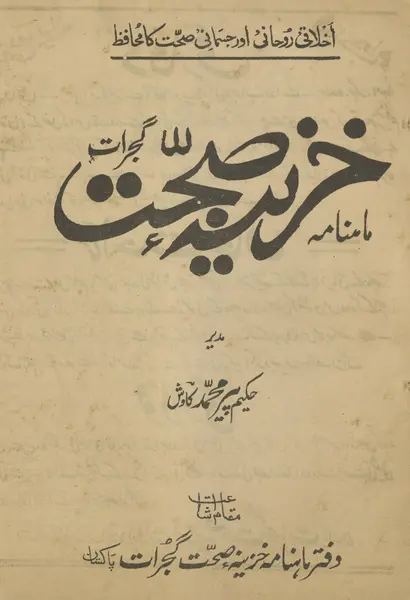 اخلاقی روحانی اور جسمانی صحت کا محافظ
ماہنامہ خزینۂ صحت گجرات
مدیر
حکیم پیر محمد کاوش
مقام اشاعت
دفتر ماہنامہ خزینۂ صحت گجرات پاکستان